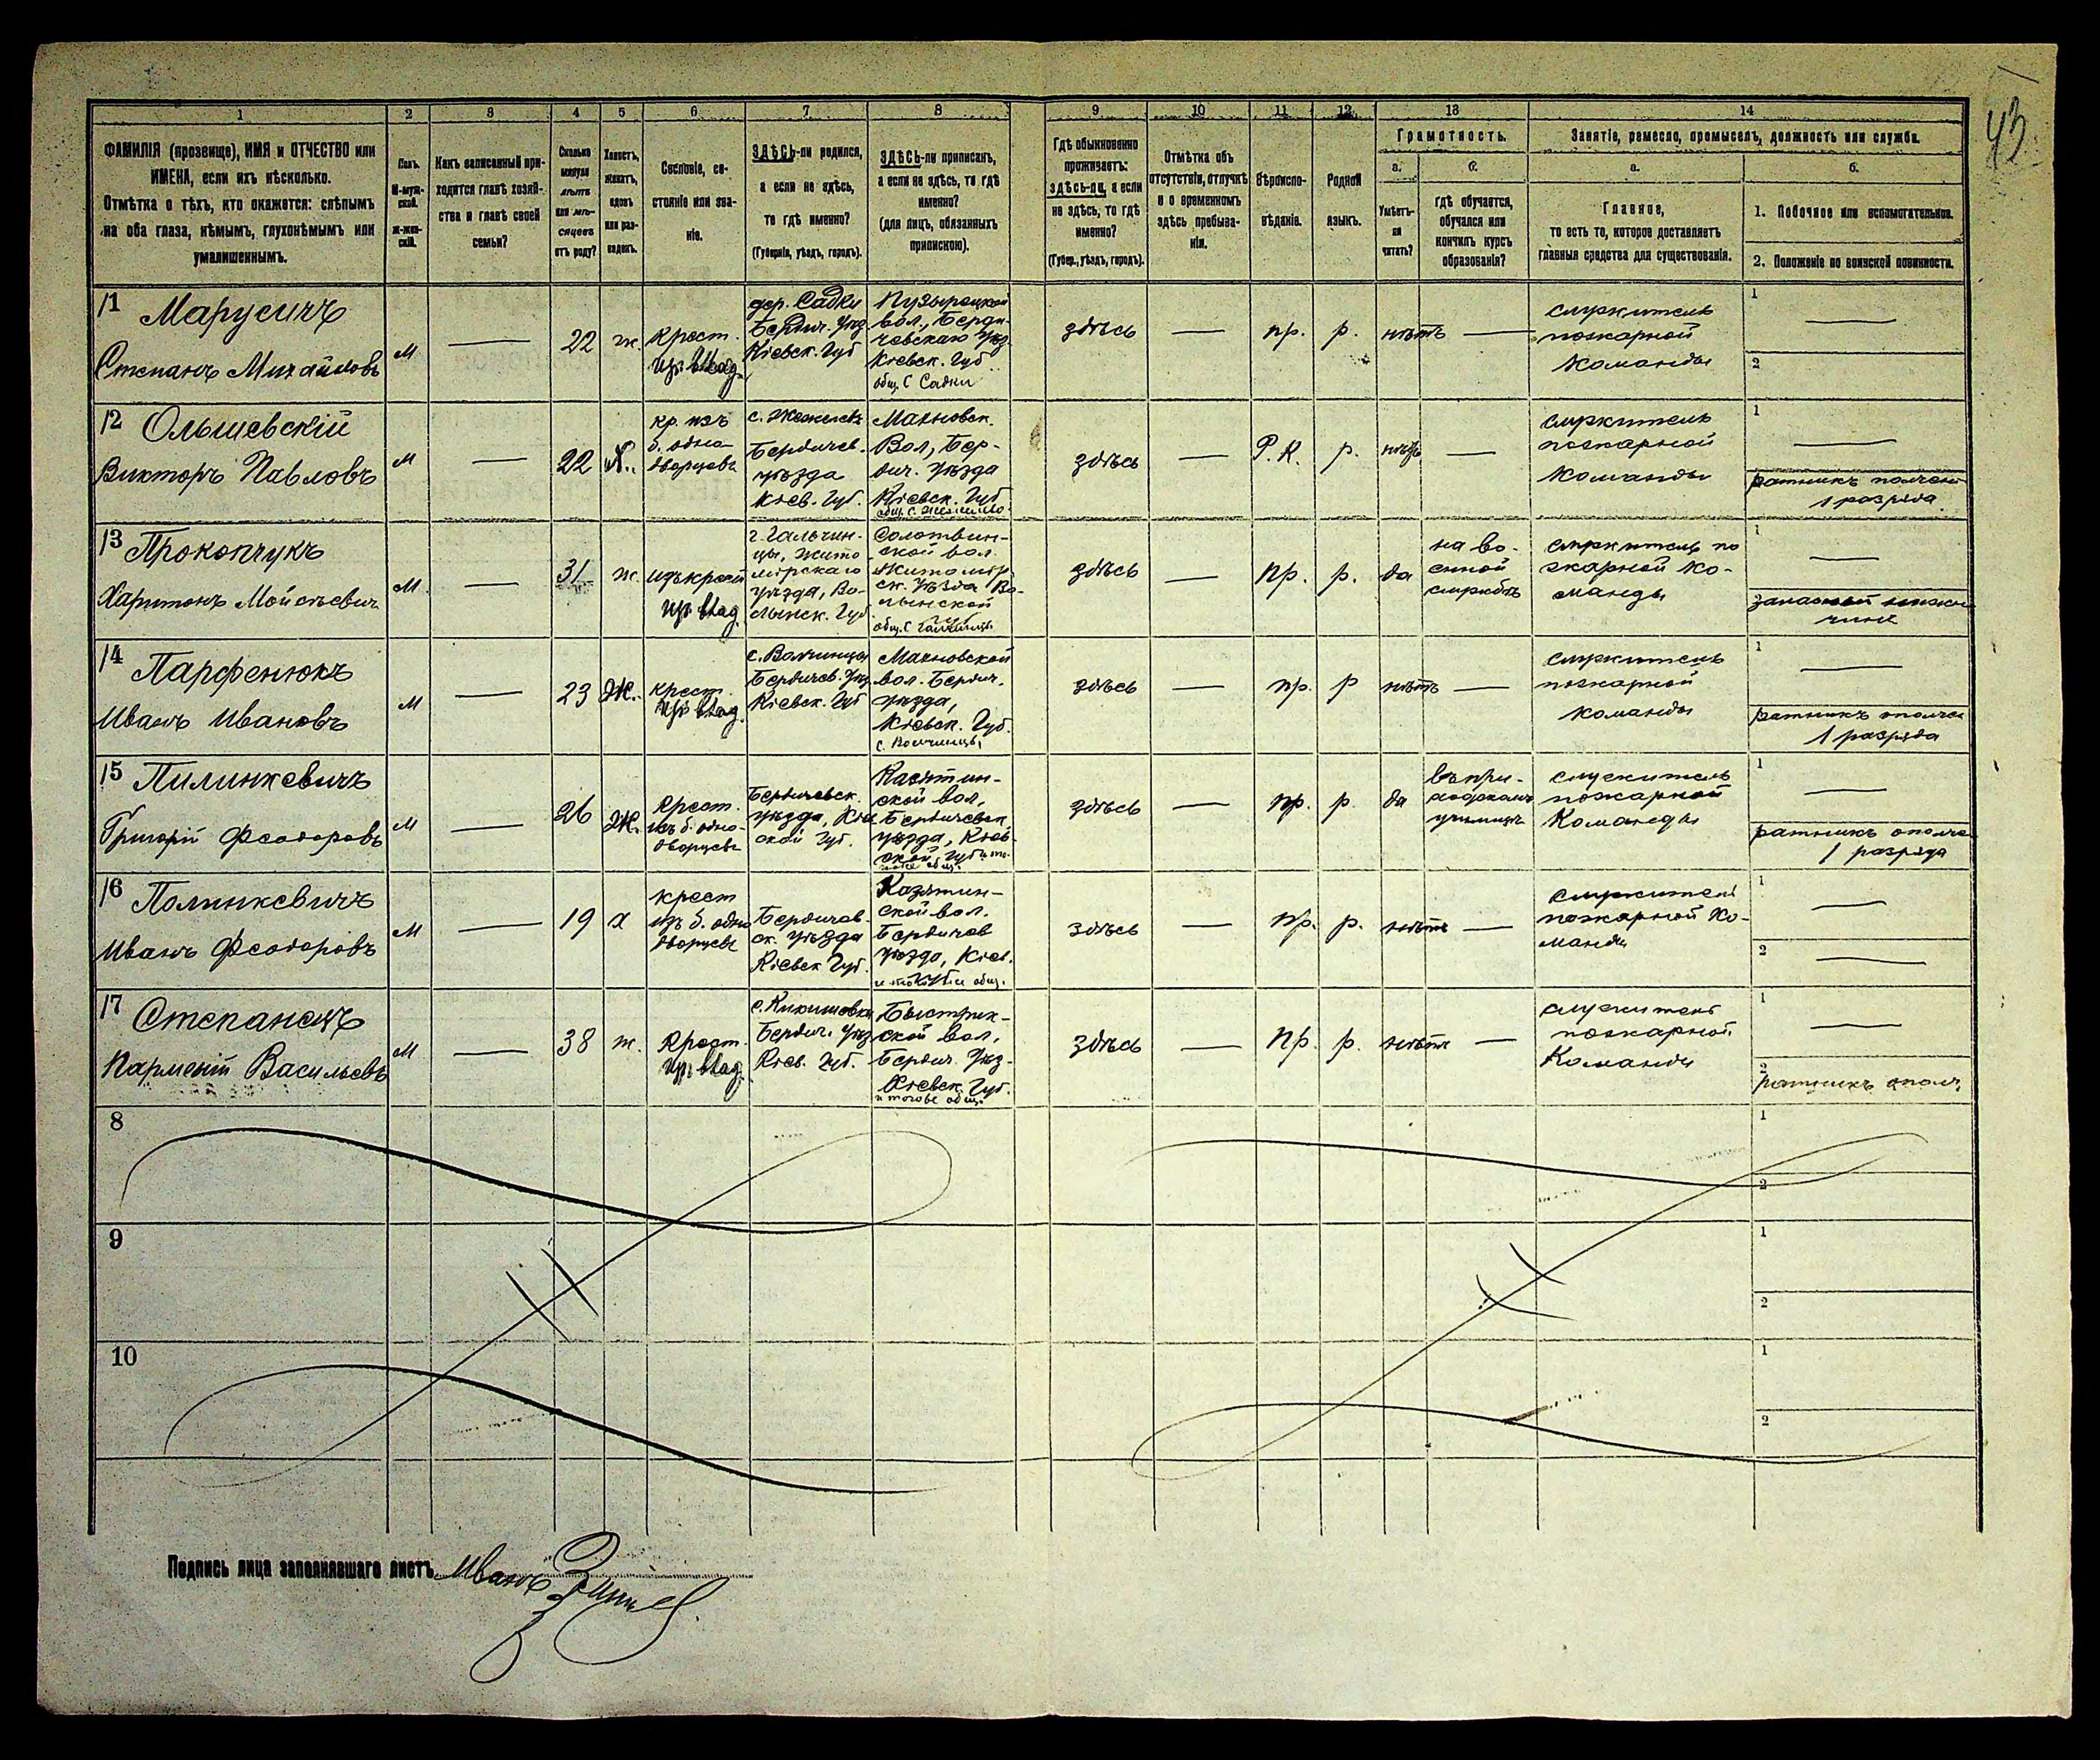 43
1 2 3 4 5 6 7 8 9 10 11 12 13 14
ФАМИЛІЯ (прозвище), ИМЯ и ОТЧЕСТВО или
ИМЕНА, если ихъ нѣсколько.
Отмѣтка о тѣхъ, кто окажется: слѣпымъ
на оба глаза, нѣмымъ, глухонѣмымъ или
умалишеннымъ.
Полъ.
М-муж-
ской.
Ж-жен-
скій.
Какъ записанный при-
ходится главѣ хозяй-
ства и главѣ своей
семьи?
Сколько
минуло
лѣтъ
или мѣ-
сяцевъ
отъ роду?
Холостъ,
женатъ,
вдовъ
или раз-
веденъ.
Сословіе, со-
стояніе или зва-
ніе.
ЗДѢСЬ-ли родился,
а если не здѣсь,
то гдѣ именно?
(Губернія, уѣздъ, городъ).
ЗДѢСЬ-ли приписанъ,
а если не здѣсь, то гдѣ
именно?
(для лицъ, обязанныхъ
припискою).
Гдѣ обыкновенно
проживаетъ:
здѣсь-ли, а если
не здѣсь, то гдѣ
именно?
(Губер., уѣздъ, городъ).
Отмѣтка объ
отсутствіи, отлучкѣ
и о временномъ
здѣсь пребыва-
ніи.
Вѣроиспо-
вѣданіе.
Родной
языкъ.
Грамотность.
а.
Умѣетъ-
ли
читать?
б.
гдѣ обучается,
обучался или
кончилъ курсъ
образованія?
Занятіе, ремесло, промыселъ, должность или служба.
а.
Главное,
то есть то, которое доставляетъ
главныя средства для существованія.
б.
1. Побочное или вспомогательное.
2. Положеніе по воинской повинности.
11 Марусичъ
Степанъ Михайловъ
м
22
ж.
Крест.
дер. Садки
Бердич. Уѣз
Кіевск. Губ
Пузырецкой
вол., Берди-
чевскаго Уѣз
Кіевск. Губ
общ. с Садки
здѣсь
пр.
р.
нѣтъ
служитель
пожарной
команды
1
2
12 Ольшевскій
Викторъ Павловъ
м
22
Х.
кр. изъ
б. одно-
дворцевъ
Бердичев.
уѣзда
Кіев. Губ.
Махновск.
Вол, Бер-
дич. уѣзда
Кіевск. Губ
здѣсь
Р.К.
р.
нѣтъ
служитель
пожарной
Команды
1
1 разряда.
13 Прокопчукъ
Харитонъ Мойсѣевичъ
м.
31
ж.
изъ крест
Гальчин-
цы, Жито-
мірскаго
уѣзда, Во-
лынск. Губ
Солотвин-
ской вол.
Житомір
ск. уѣзда Во-
лынской
здѣсь
пр.
р.
да
на во-
енной
службѣ
служитель по
жарной Ко-
манды
1
14 Парфенюкъ
Иванъ Ивановъ
м
23
Ж.
крест.
с. Волчинцы
Бердичев. Уѣз.
Кіевск. Губ
Махновской
вол. Бердич.
уѣзда,
Кіевск. Губ.
с. Волчинцы
здѣсь
пр.
р
нѣтъ
служитель
пожарной
команды
1
ратникъ ополчен
1 разряда
15 Пилинкевичъ
Григорій Феодоровъ
м
26
Ж.
Крест.
изъ б. одно-
дворцевъ
Бердичевск.
уѣзда, Кіев
ской Губ.
Казятин-
ской вол.
Бердичевск.
уѣзда, Кіев-
ской Губ
здѣсь
пр.
р.
да
въ при-
ходскомъ
училищѣ
служитель
пожарной
Команды
1
ратникъ ополче
1 разряда
16 Полинкевичъ
Иванъ Феодоровъ
м
19
х
крест
изъ б. одно
дворцевъ
Бердичев-
ск. уѣзда
Кіевск Губ.
Казятин-
ской вол.
Бердичев
уѣзда, Кіев.
здѣсь
пр.
р.
нѣтъ
служитель
пожарной Ко-
манды
1
2
17 Степанецъ
Парменій Васильевъ
м
38
ж.
Крест.
с. Кикишовка
Бердич. Уѣз
Кіев. Губ.
Быстрик-
ской вол.
Бердич. Уѣз-
Кіевск. Губ.
здѣсь
пр.
р.
нѣтъ
служитель
пожарной
Команды
1
2
ратникъ ополч.
8
1
2
9
1
2
10
1
2
Подпись лица заполнявшаго листъ Иванъ